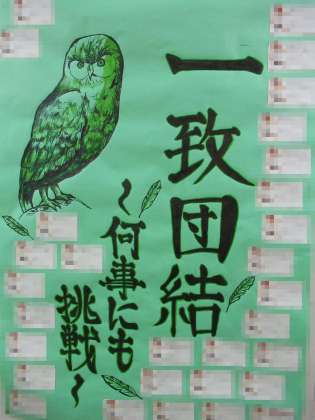 一致団結
～何事にも
挑戦～